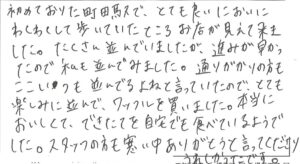 初めておりた町田駅で、とても良いにおいに
わくわくして歩いていたところお店が見えて来ま
した。たくさん並んでいましたが、進みが早かっ
たので私も並んでみました。通りがかりの方も
ここいつも並んでるよねと言っていたので、とても
楽しみに並んで、ワッフルを買いました。本当に
おいしくて、できたてを自宅でも食べているようで
した。スタッフの方も寒い中ありがとうと言ってくださり
うれしかったです。